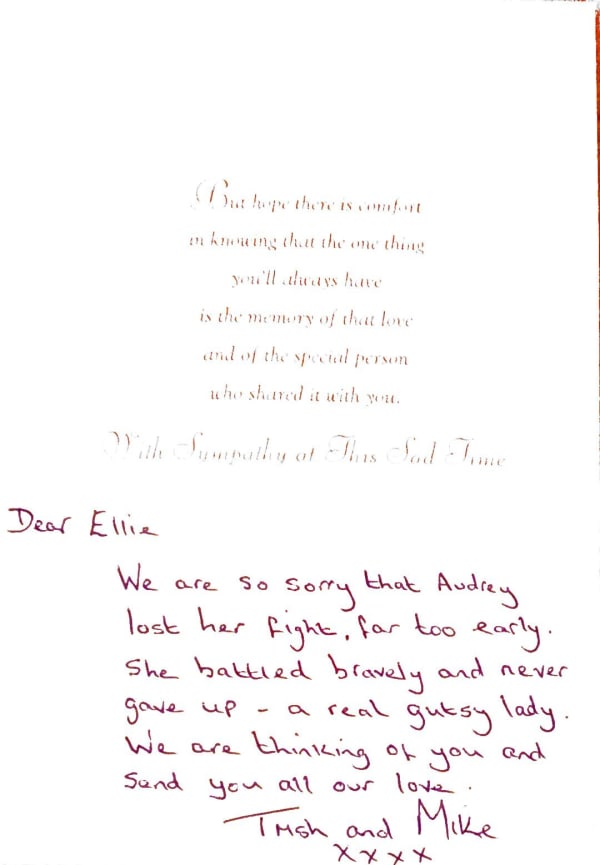 But hope there is comfort
in knowing that the one thing
you'll always have
is the memory of that love
and of the special person
who shared it with you.
With Sympathy at This Sad Time
Dear Ellie
We are so sorry that Audrey
lost her fight, far too early.
She battled bravely and never
gave up - a real gutsy lady.
We are thinking of you and
send you all our love.
Trish and Mike
xxxx